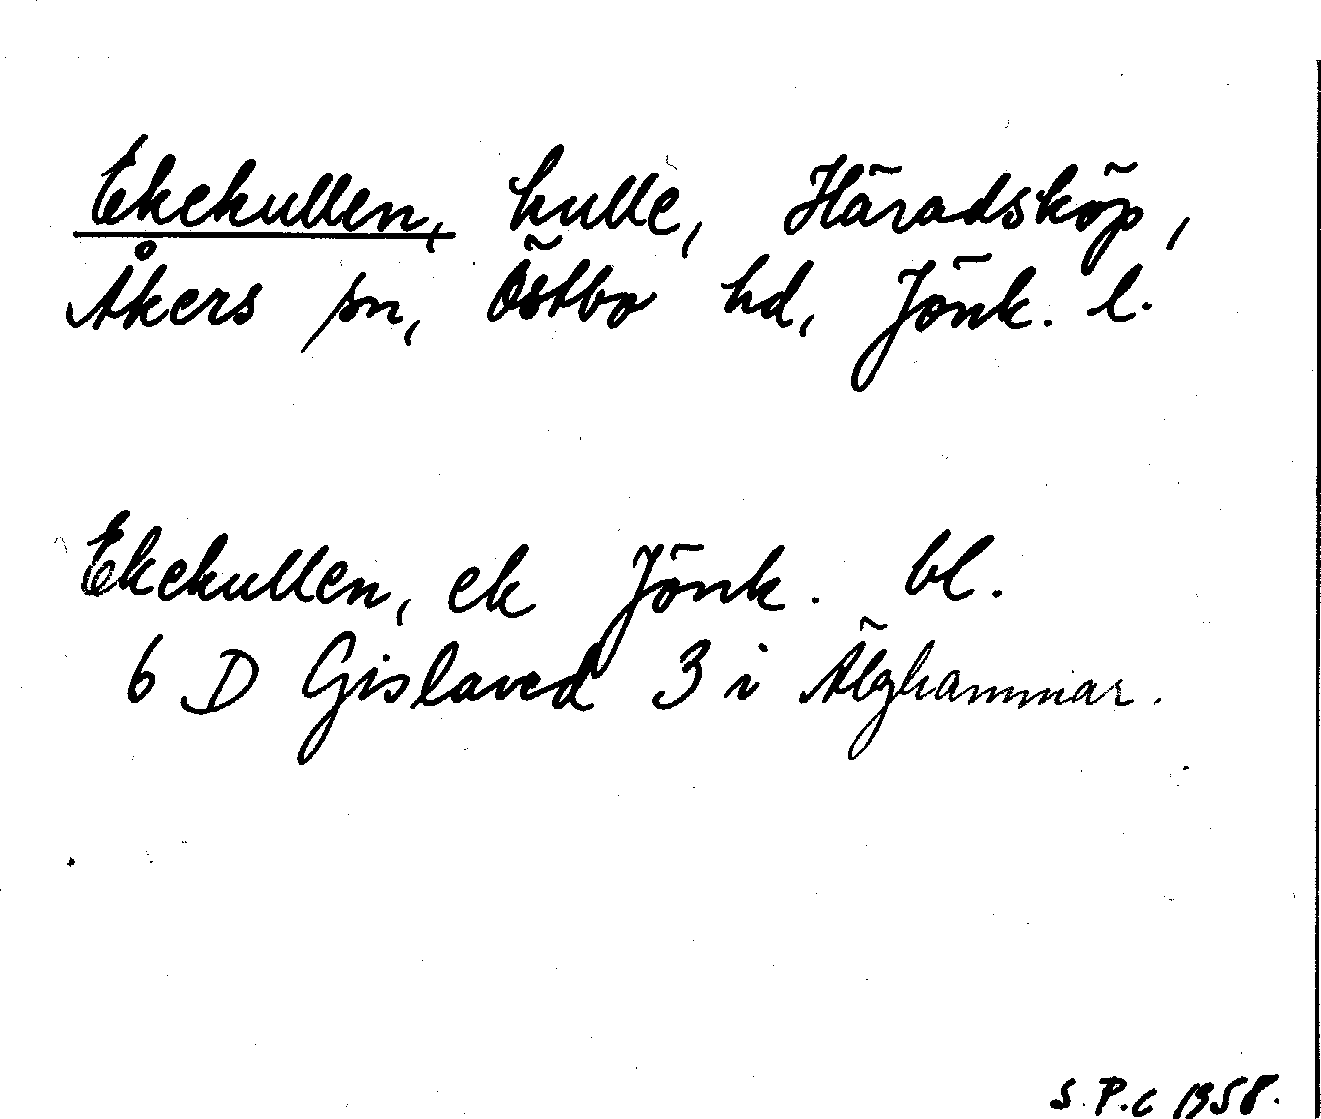 Ekekullen, kulle, Häradsköp,
Åkers sn, Östbo hd, Jönk. l.
Ekekullen, ek Jönk. bl.
6 D Gislaved 3 i Älghammar.
S.P.c 1958.